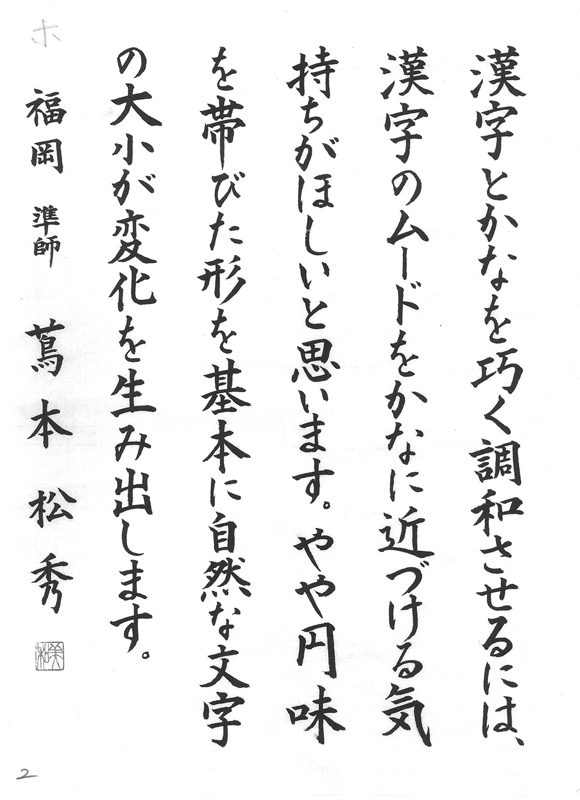 漢字とかなを巧く調和させるには、
漢字のムードをかなに近づける気
持ちがほしいと思います。やや円味
を帯びた形を基本に自然な文字
の大小が変化を生み出します。
福岡 準師 蔦本 松秀
ホ
2